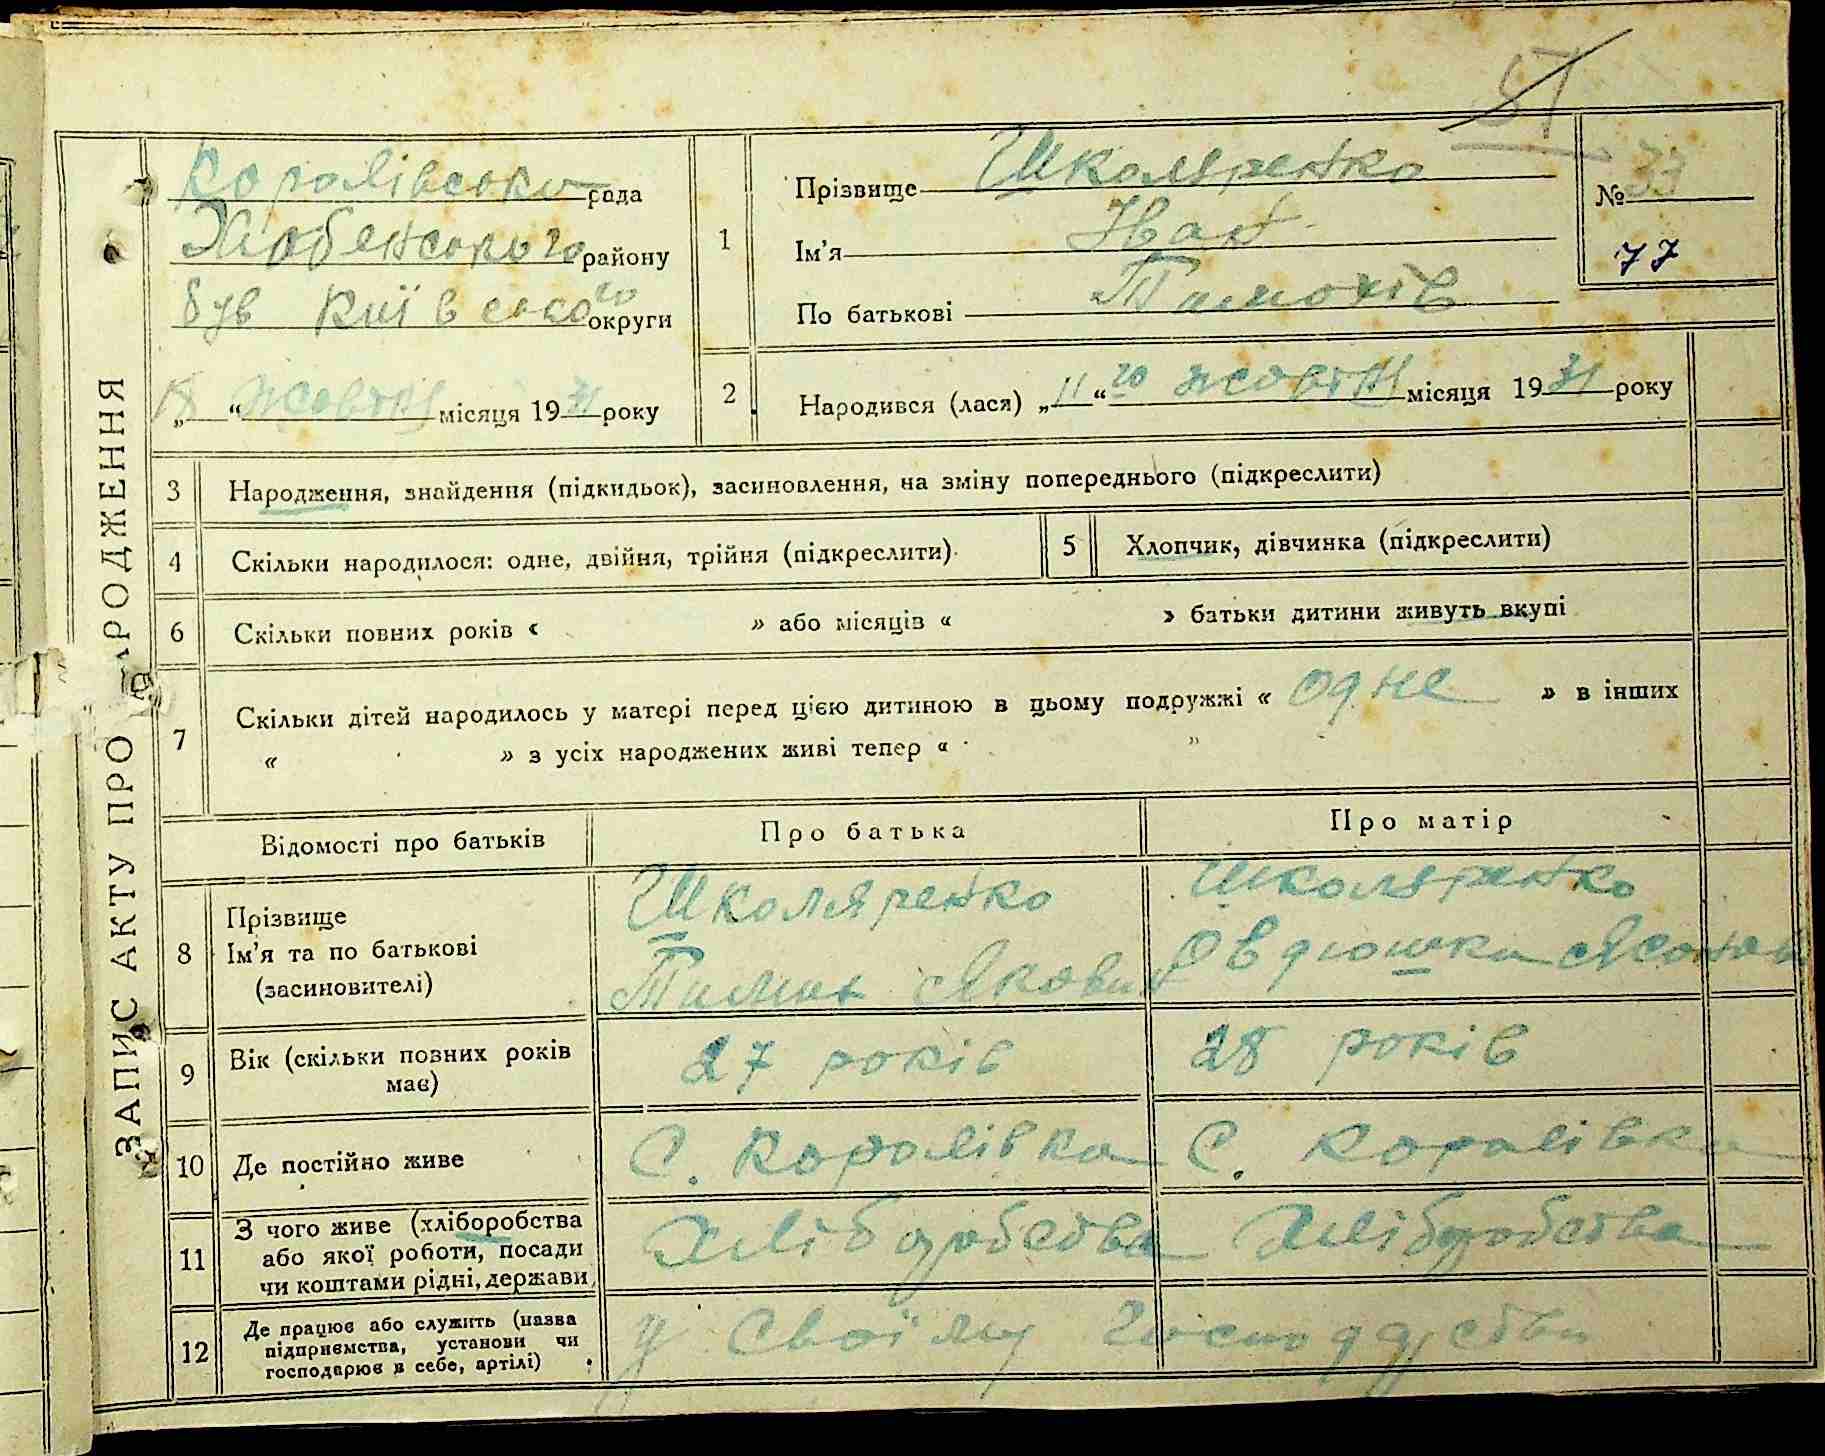 ЗАПИС АКТУ ПРО НАРОДЖЕННЯ
57
Королівська рада
Хабенського району
був Київського округи
18 " жовтня місяця 1931 року
1
Прізвище Школяренко
Ім'я Іван
По батькові Тимохів
№ 33
77
2
Народився (лася) „11“ го жовтня місяця 1931 року
3 Народження, знайдення (підкидьок), засиновлення, на зміну попереднього (підкреслити)
4 Скільки народилося: одне, двійня, трійня (підкреслити)
5 Хлопчик, дівчинка (підкреслити)
6 Скільки повних років « » або місяців « » батьки дитини живуть вкупі
7 Скільки дітей народилось у матері перед цією дитиною в цьому подружжі « одне » в інших
« » з усіх народжених живі тепер « "
Відомості про батьків
Про батька
Про матір
8 Прізвище
Ім'я та по батькові
(засиновителі)
Школяренко
Тимош Якович
Школяренко
Овдюшка
9 Вік (скільки повних років
має)
27 років
28 років
10 Де постійно живе
С. Королівка
С. Королівка
11 З чого живе (хліборобства
або якої роботи, посади
чи коштами рідні, держави
Хліборобства
Хліборобства
12 Де працює або служить (назва
підприємства, установи чи
господарює в себе, артілі)
у своїму